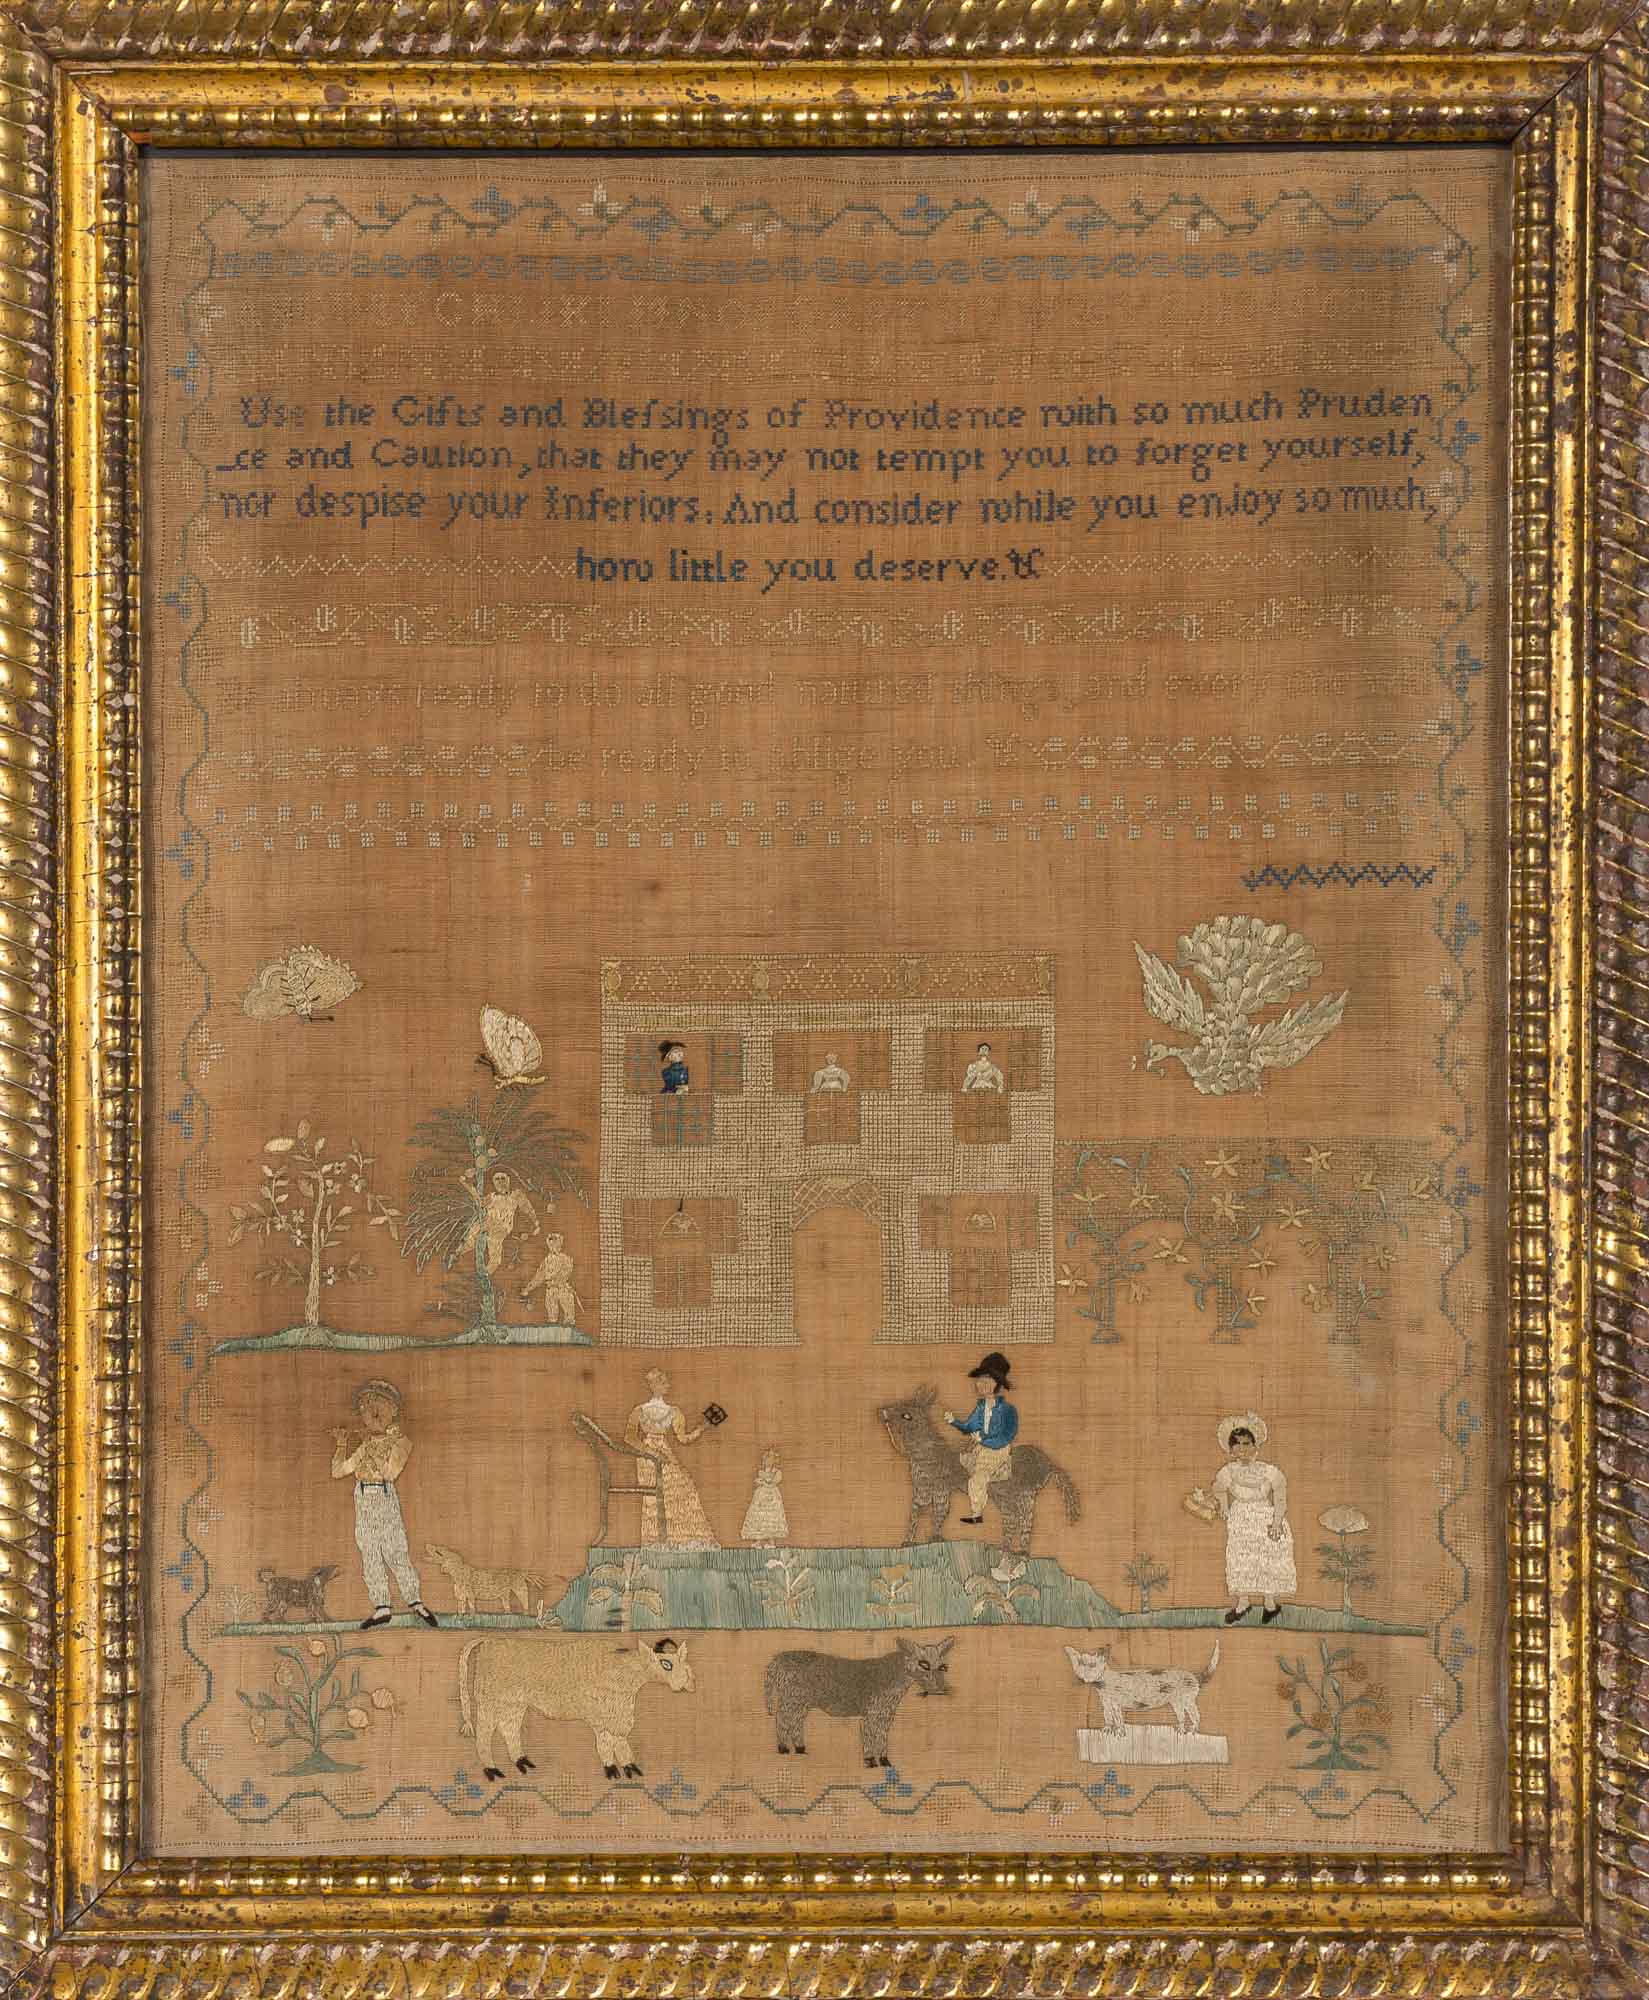 Use the Gifts and Bleſsings of Providence with so much Pruden
-ce and Caution, that they may not tempt you to forget yourself,
nor despise your Inferiors. And consider while you enjoy so much,
how little you deserve.
Be always ready to do all good natured things, and every one will
be ready to oblige you.